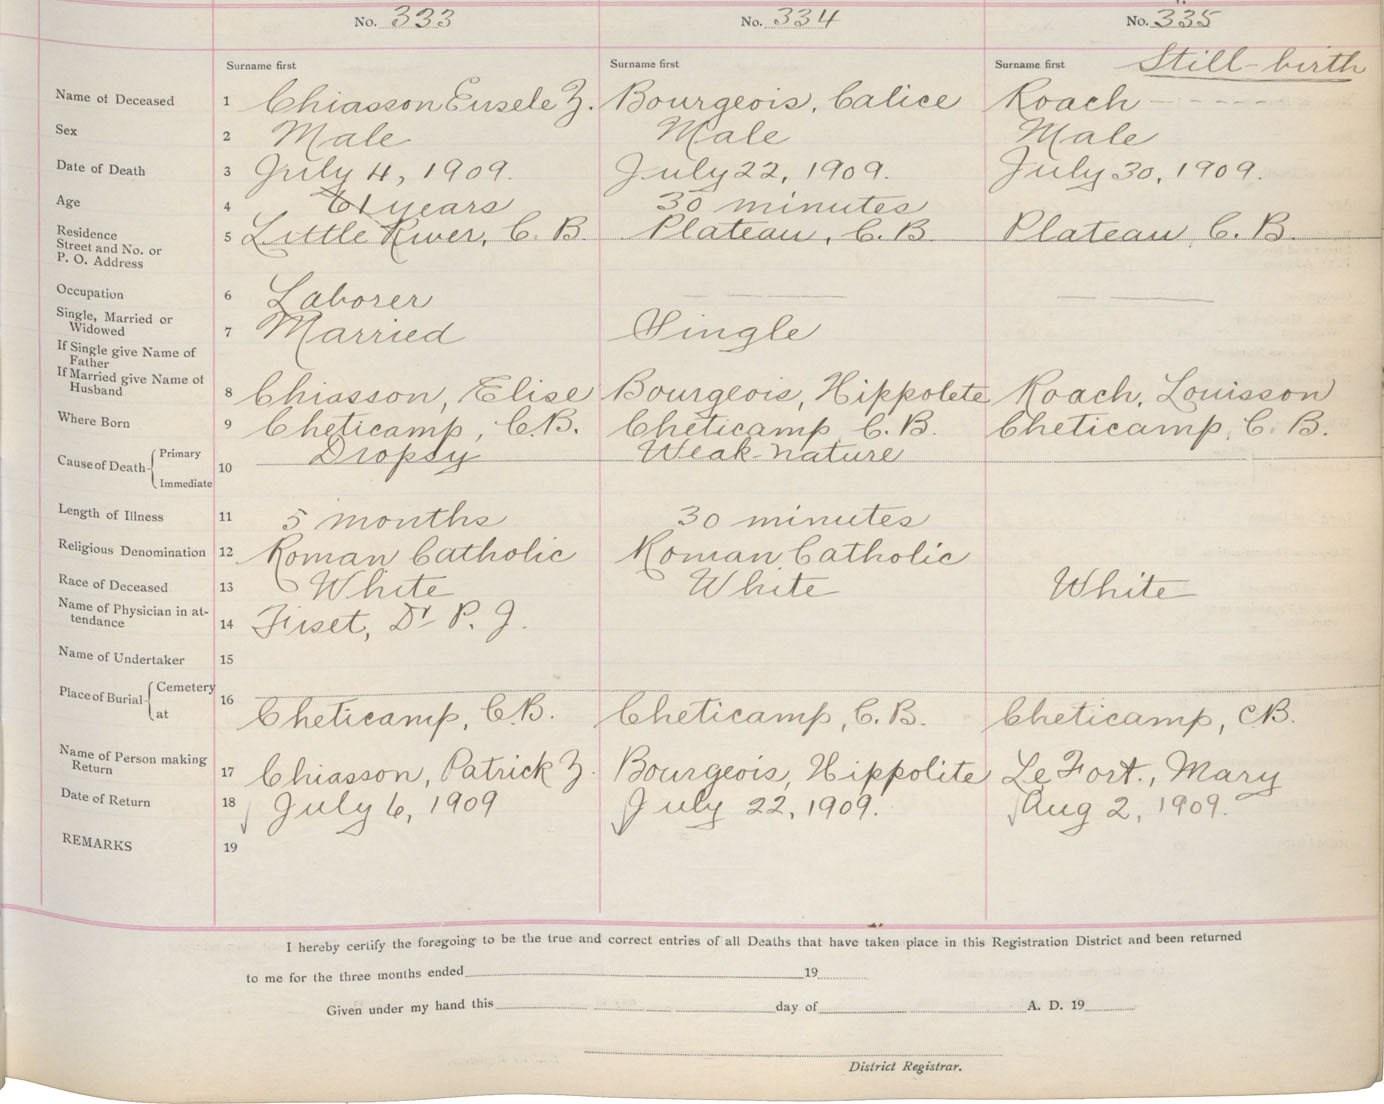 No. 333 No. 334 No. 335
Surname first Surname first Surname first Still-birth
Name of Deceased 1 Chiasson Eusele Z. Bourgeois, Calice Roach - - - - -
Sex 2 Male Male Male
Date of Death 3 July 4, 1909. July 22, 1909. July 30, 1909.
Age 4 61 years 30 minutes
Residence
Street and No. or
P. O. Address 5 Little River, C. B. Plateau, C. B. Plateau, C. B.
Occupation 6 Laborer
Single, Married or
Widowed 7 Married Single
If Single give Name of
Father
If Married give Name of
Husband 8 Chiasson, Elise Bourgeois, Hippolete Roach, Louisson
Where Born 9 Cheticamp, C.B. Cheticamp, C. B. Cheticamp, C. B.
Cause of Death Primary Dropsy Weak-nature
10
Immediate
Length of Illness 11 5 months 30 minutes
Religious Denomination 12 Roman Catholic Roman Catholic
Race of Deceased 13 White White White
Name of Physician in at-
tendance 14 Fiset, Dr P. J.
Name of Undertaker 15
Place of Burial Cemetery 16
at Cheticamp, C.B. Cheticamp, C. B. Cheticamp, CB.
Name of Person making
Return 17 Chiasson, Patrick Z. Bourgeois, Hippolite LeFort., Mary
Date of Return 18 July 6, 1909 July 22, 1909. Aug 2, 1909.
REMARKS 19
I hereby certify the foregoing to be the true and correct entries of all Deaths that have taken place in this Registration District and been returned
to me for the three months ended 19
Given under my hand this day of A. D. 19
District Registrar.